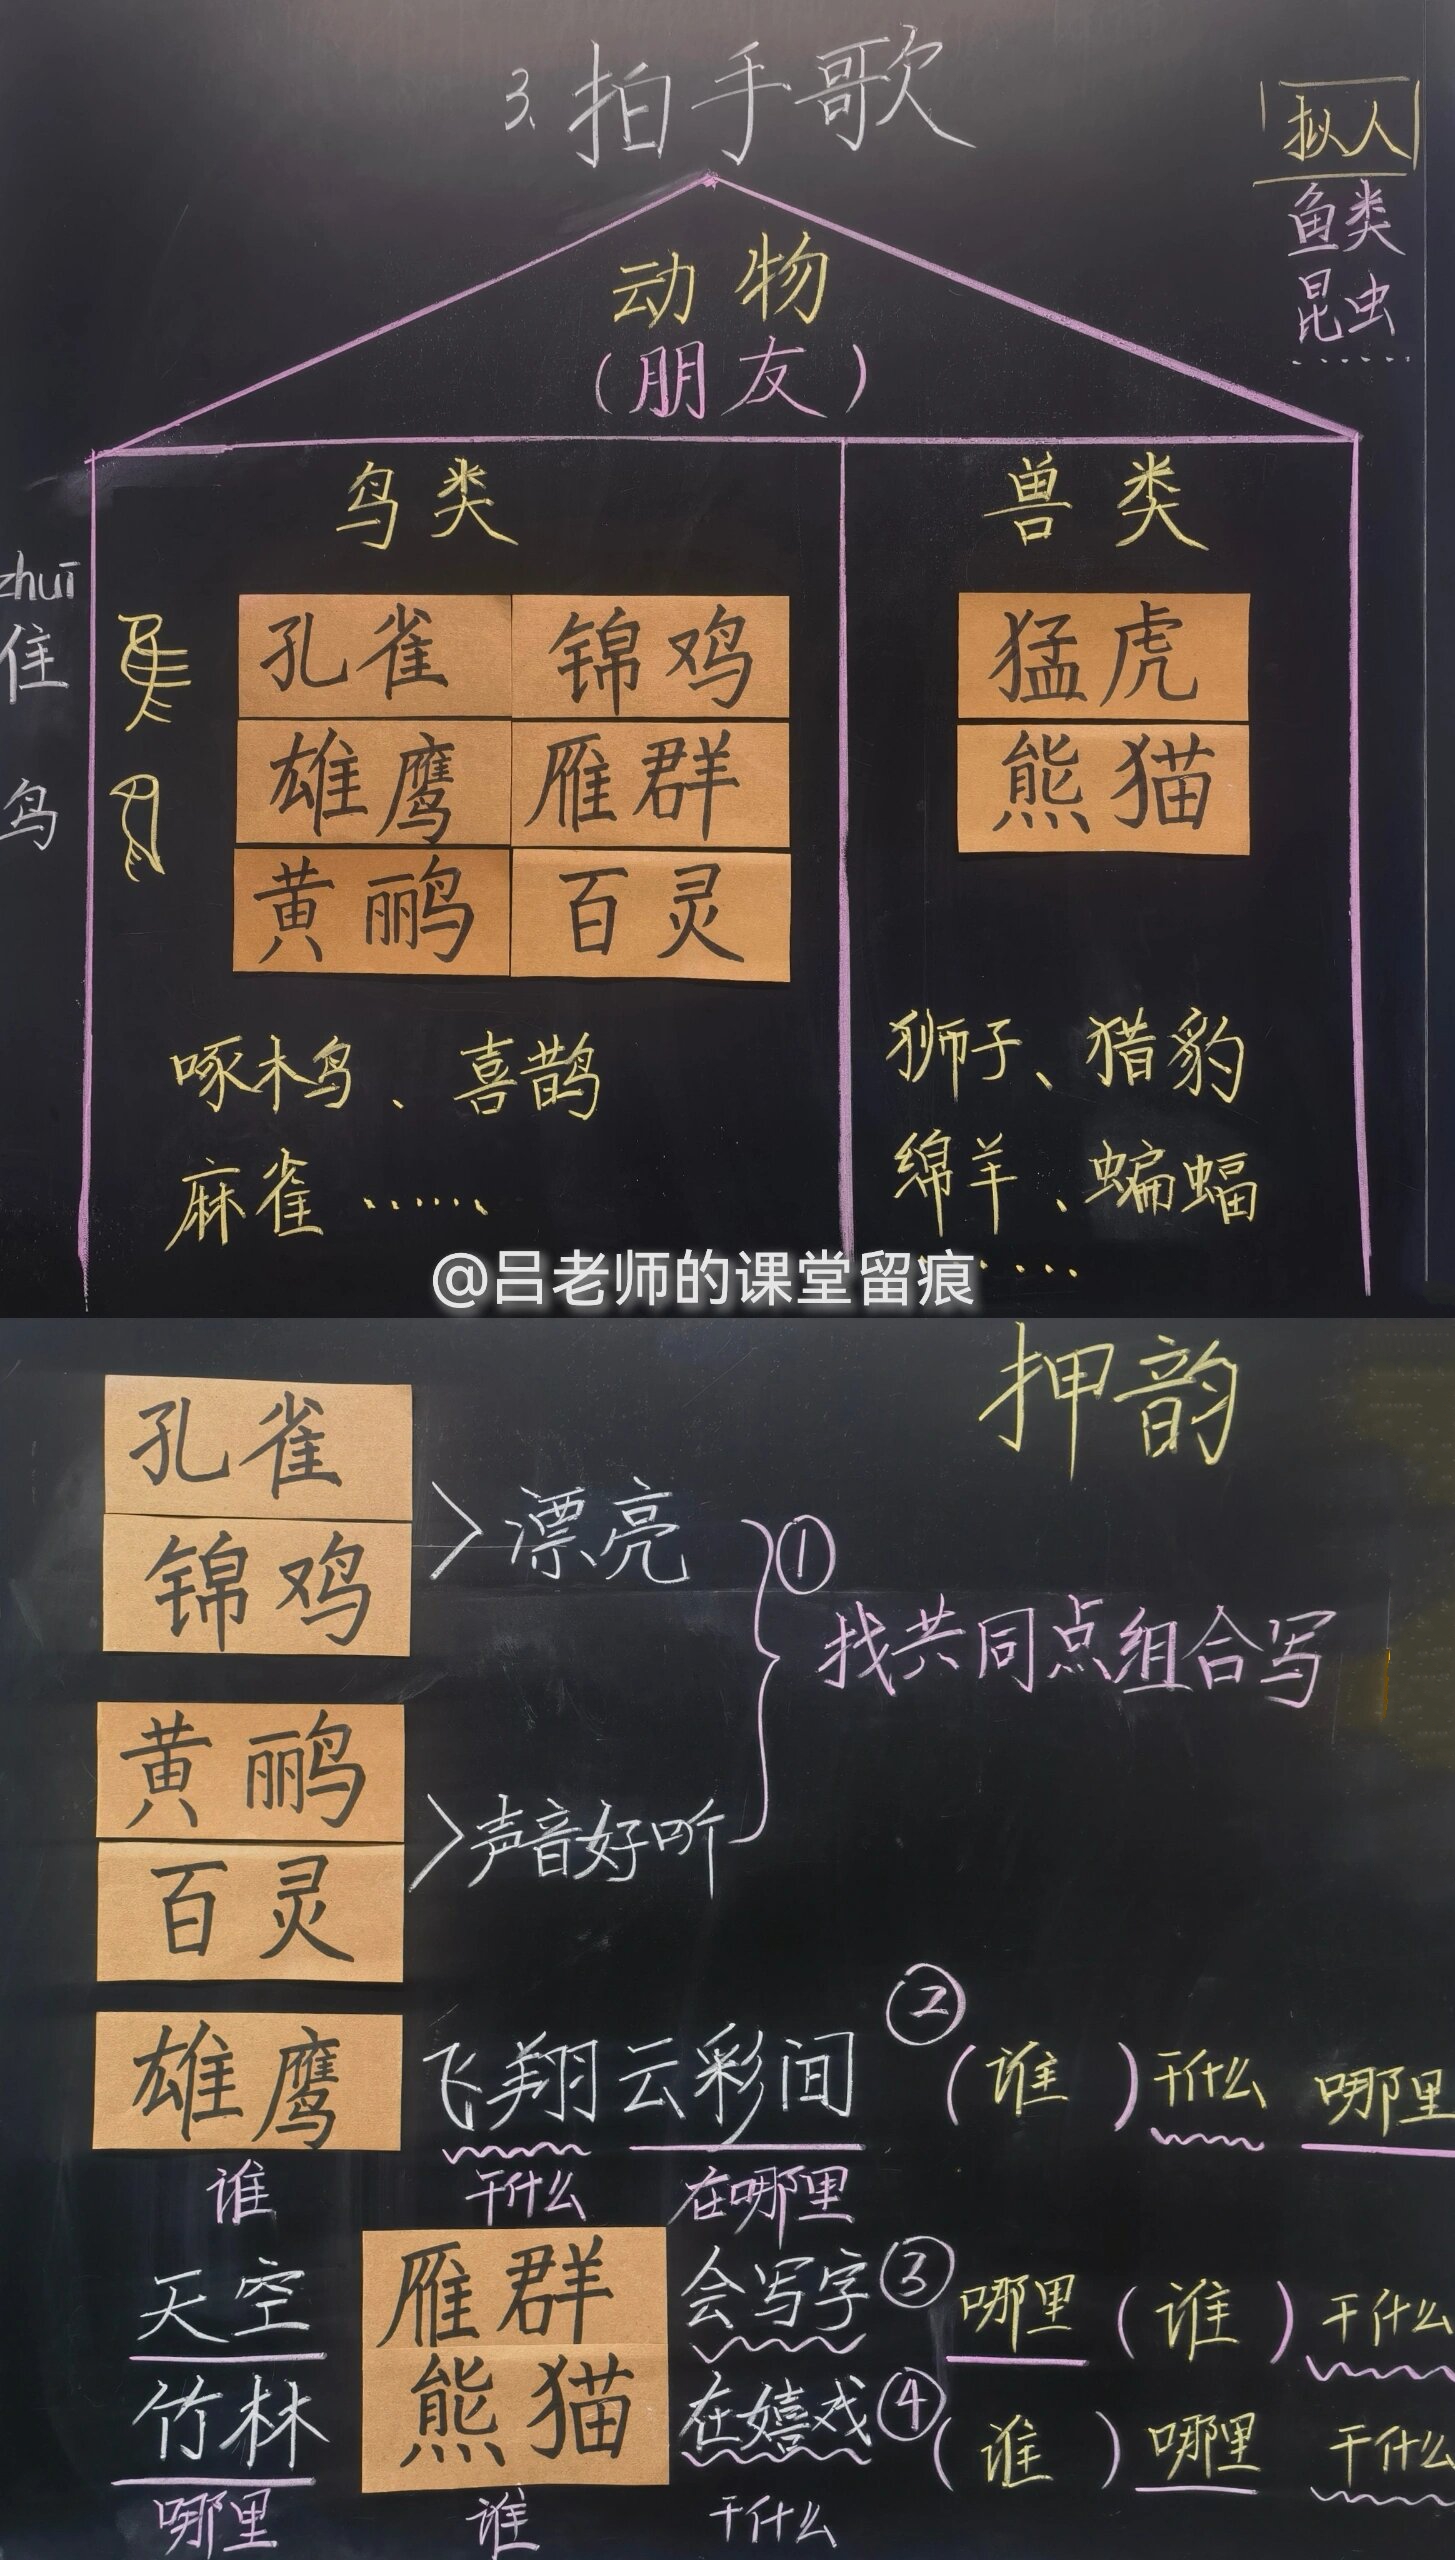 3.拍手歌
拟人
鱼类
昆虫
......
动物
(朋友)
鸟类
兽类
zhuī
隹
鸟
孔雀 锦鸡
雄鹰 雁群
黄鹂 百灵
猛虎
熊猫
啄木鸟、喜鹊
麻雀......
狮子、猎豹
绵羊、蝙蝠
......
@吕老师的课堂留痕
押韵
孔雀
锦鸡
漂亮
①
找共同点组合写
黄鹂
百灵
声音好听
雄鹰 飞翔云彩间 ② (谁)干什么 哪里
谁 干什么 在哪里
天空 雁群 会写字 ③ 哪里(谁)干什么
竹林 熊猫 在嬉戏 ④ (谁)哪里 干什么
哪里 谁 干什么